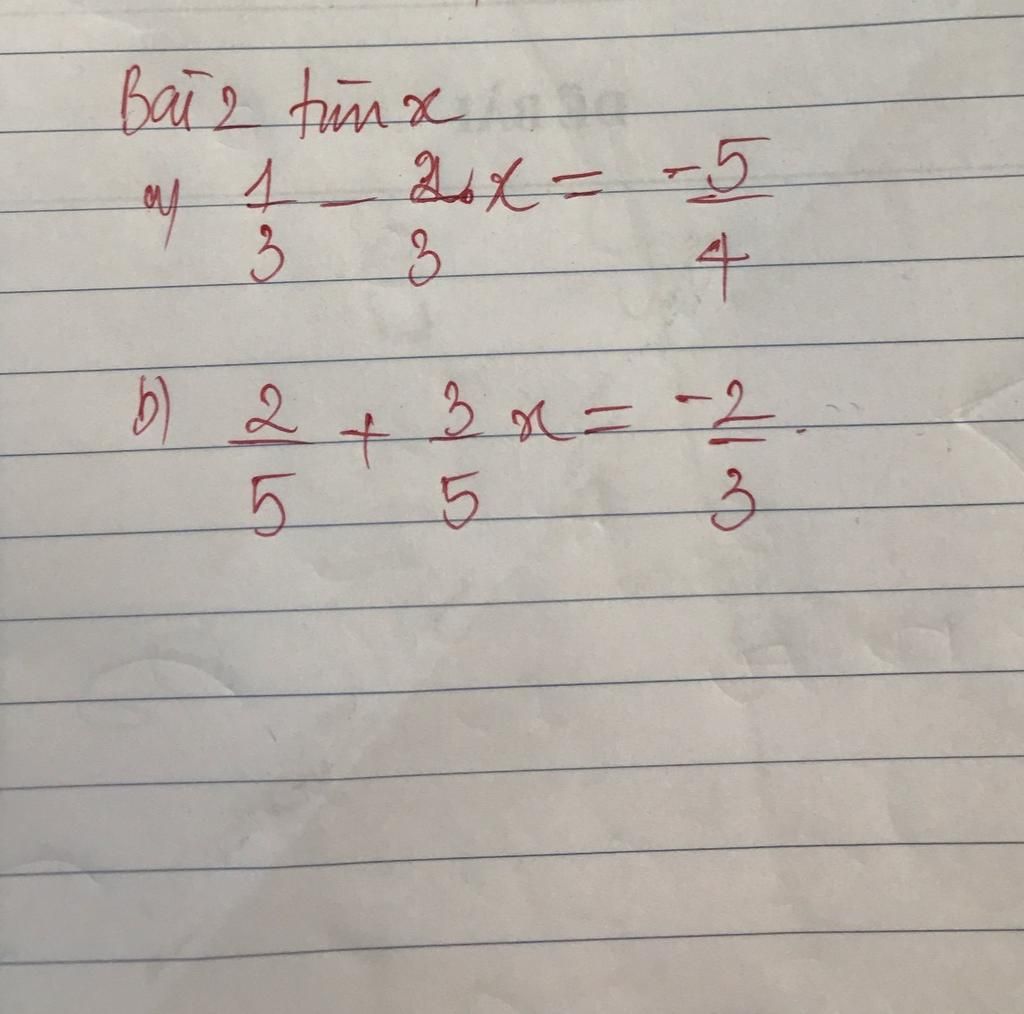 Bài 2 tìm x
a) 1/3 - 2/3.x = -5/4
b) 2/5 + 3/5 x = -2/3.